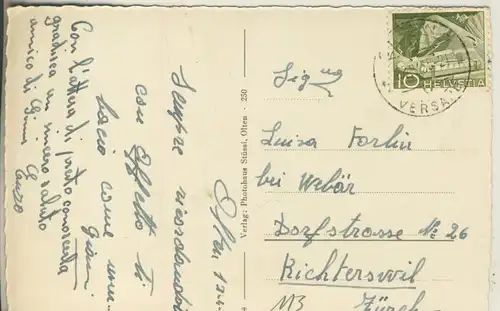 Con l'attesa di presto conoscerla
gradisca un sincero saluto
amico di
Enzo
Sempre ricordando
con affetto ti
bacio come
Giani
Olten
Verlag: Photohaus Stüssi, Olten - 250
10 HELVETIA
VERSA
Sig.na
Luisa Forlin
bei Webär
Dorfstrasse No 26
Richterswil
Zürch